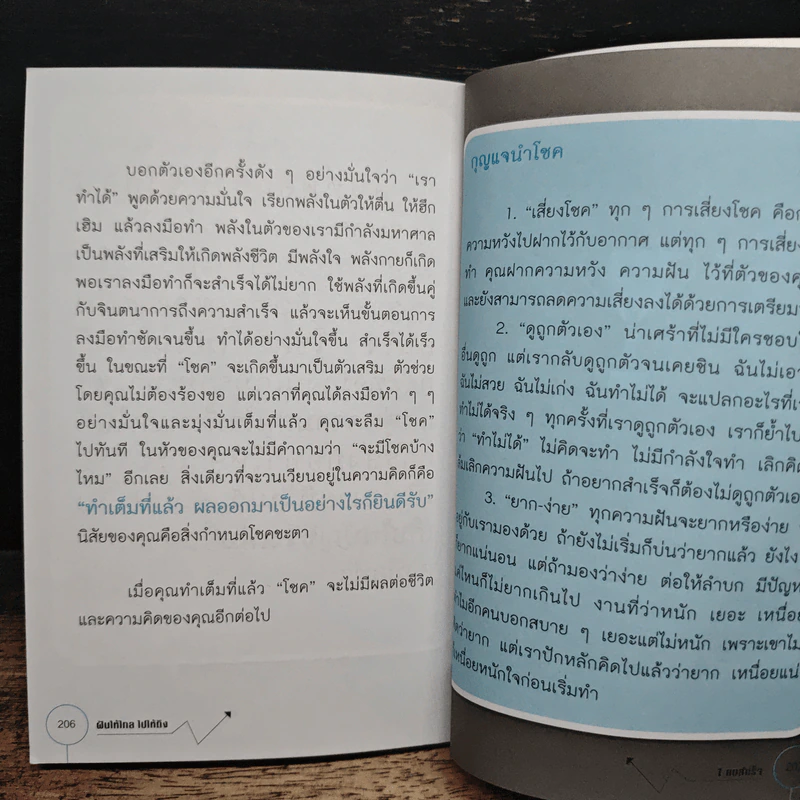 บอกตัวเองอีกครั้งดัง ๆ อย่างมั่นใจว่า “เรา
ทำได้” พูดด้วยความมั่นใจ เรียกพลังในตัวให้ตื่น ให้ฮึก
เหิม แล้วลงมือทำ พลังในตัวของเรามีกำลังมหาศาล
เป็นพลังที่เสริมให้เกิดพลังชีวิต มีพลังใจ พลังกายก็เกิด
พอเราลงมือทำก็จะสำเร็จได้ไม่ยาก ใช้พลังที่เกิดขึ้นคู่
กับจินตนาการถึงความสำเร็จ แล้วจะเห็นขั้นตอนการ
ลงมือทำชัดเจนขึ้น ทำได้อย่างมั่นใจขึ้น สำเร็จได้เร็ว
ขึ้น ในขณะที่ “โชค” จะเกิดขึ้นมาเป็นตัวเสริม ตัวช่วย
โดยคุณไม่ต้องร้องขอ แต่เวลาที่คุณได้ลงมือทำ ๆ ๆ
อย่างมั่นใจและมุ่งมั่นเต็มที่แล้ว คุณจะลืม “โชค”
ไปทันที ในหัวของคุณจะไม่มีคำถามว่า “จะมีโชคบ้าง
ไหม” อีกเลย สิ่งเดียวที่จะวนเวียนอยู่ในความคิดก็คือ
“ทำเต็มที่แล้ว ผลออกมาเป็นอย่างไรก็ยินดีรับ”
นิสัยของคุณคือสิ่งกำหนดโชคชะตา
เมื่อคุณทำเต็มที่แล้ว “โชค” จะไม่มีผลต่อชีวิต
และความคิดของคุณอีกต่อไป
206 ฝันให้ไกล ไปให้ถึง
กุญแจนำโชค
1. “เสี่ยงโชค” ทุก ๆ การเสี่ยงโชค คือ
ความหวังไปฝากไว้กับอากาศ แต่ทุก ๆ การเสี่ยง
ทำ คุณฝากความหวัง ความฝัน ไว้ที่ตัวของคุ
และยังสามารถลดความเสี่ยงลงได้ด้วยการเตรียม
2. “ดูถูกตัวเอง” น่าเศร้าที่ไม่มีใครชอบ
อื่นดูถูก แต่เรากลับดูถูกตัวจนเคยชิน ฉันไม่เอา
ฉันไม่สวย ฉันไม่เก่ง ฉันทำไม่ได้ จะแปลกอะไรที่เ
ทำไม่ได้จริง ๆ ทุกครั้งที่เราดูถูกตัวเอง เราก็ย้ำไป
ว่า “ทำไม่ได้” ไม่คิดจะทำ ไม่มีกำลังใจทำ เลิกคิด
ล้มเลิกความฝันไป ถ้าอยากสำเร็จก็ต้องไม่ดูถูกตัวเอ
3. “ยาก-ง่าย” ทุกความฝันจะยากหรือง่าย
อยู่กับเรามองด้วย ถ้ายังไม่เริ่มก็บ่นว่ายากแล้ว ยังไง
ยากแน่นอน แต่ถ้ามองว่าง่าย ต่อให้ลำบก มีปัญห
แค่ไหนก็ไม่ยากเกินไป งานที่ว่าหนัก เยอะ เหนื่อย
ทำไมอีกคนบอกสบาย ๆ เยอะแต่ไม่หนัก เพราะเขาไม่
คิดว่ายาก แต่เราปักหลักคิดไปแล้วว่ายาก เหนื่อยแน่
เหนื่อยหนักใจก่อนเริ่มทำ